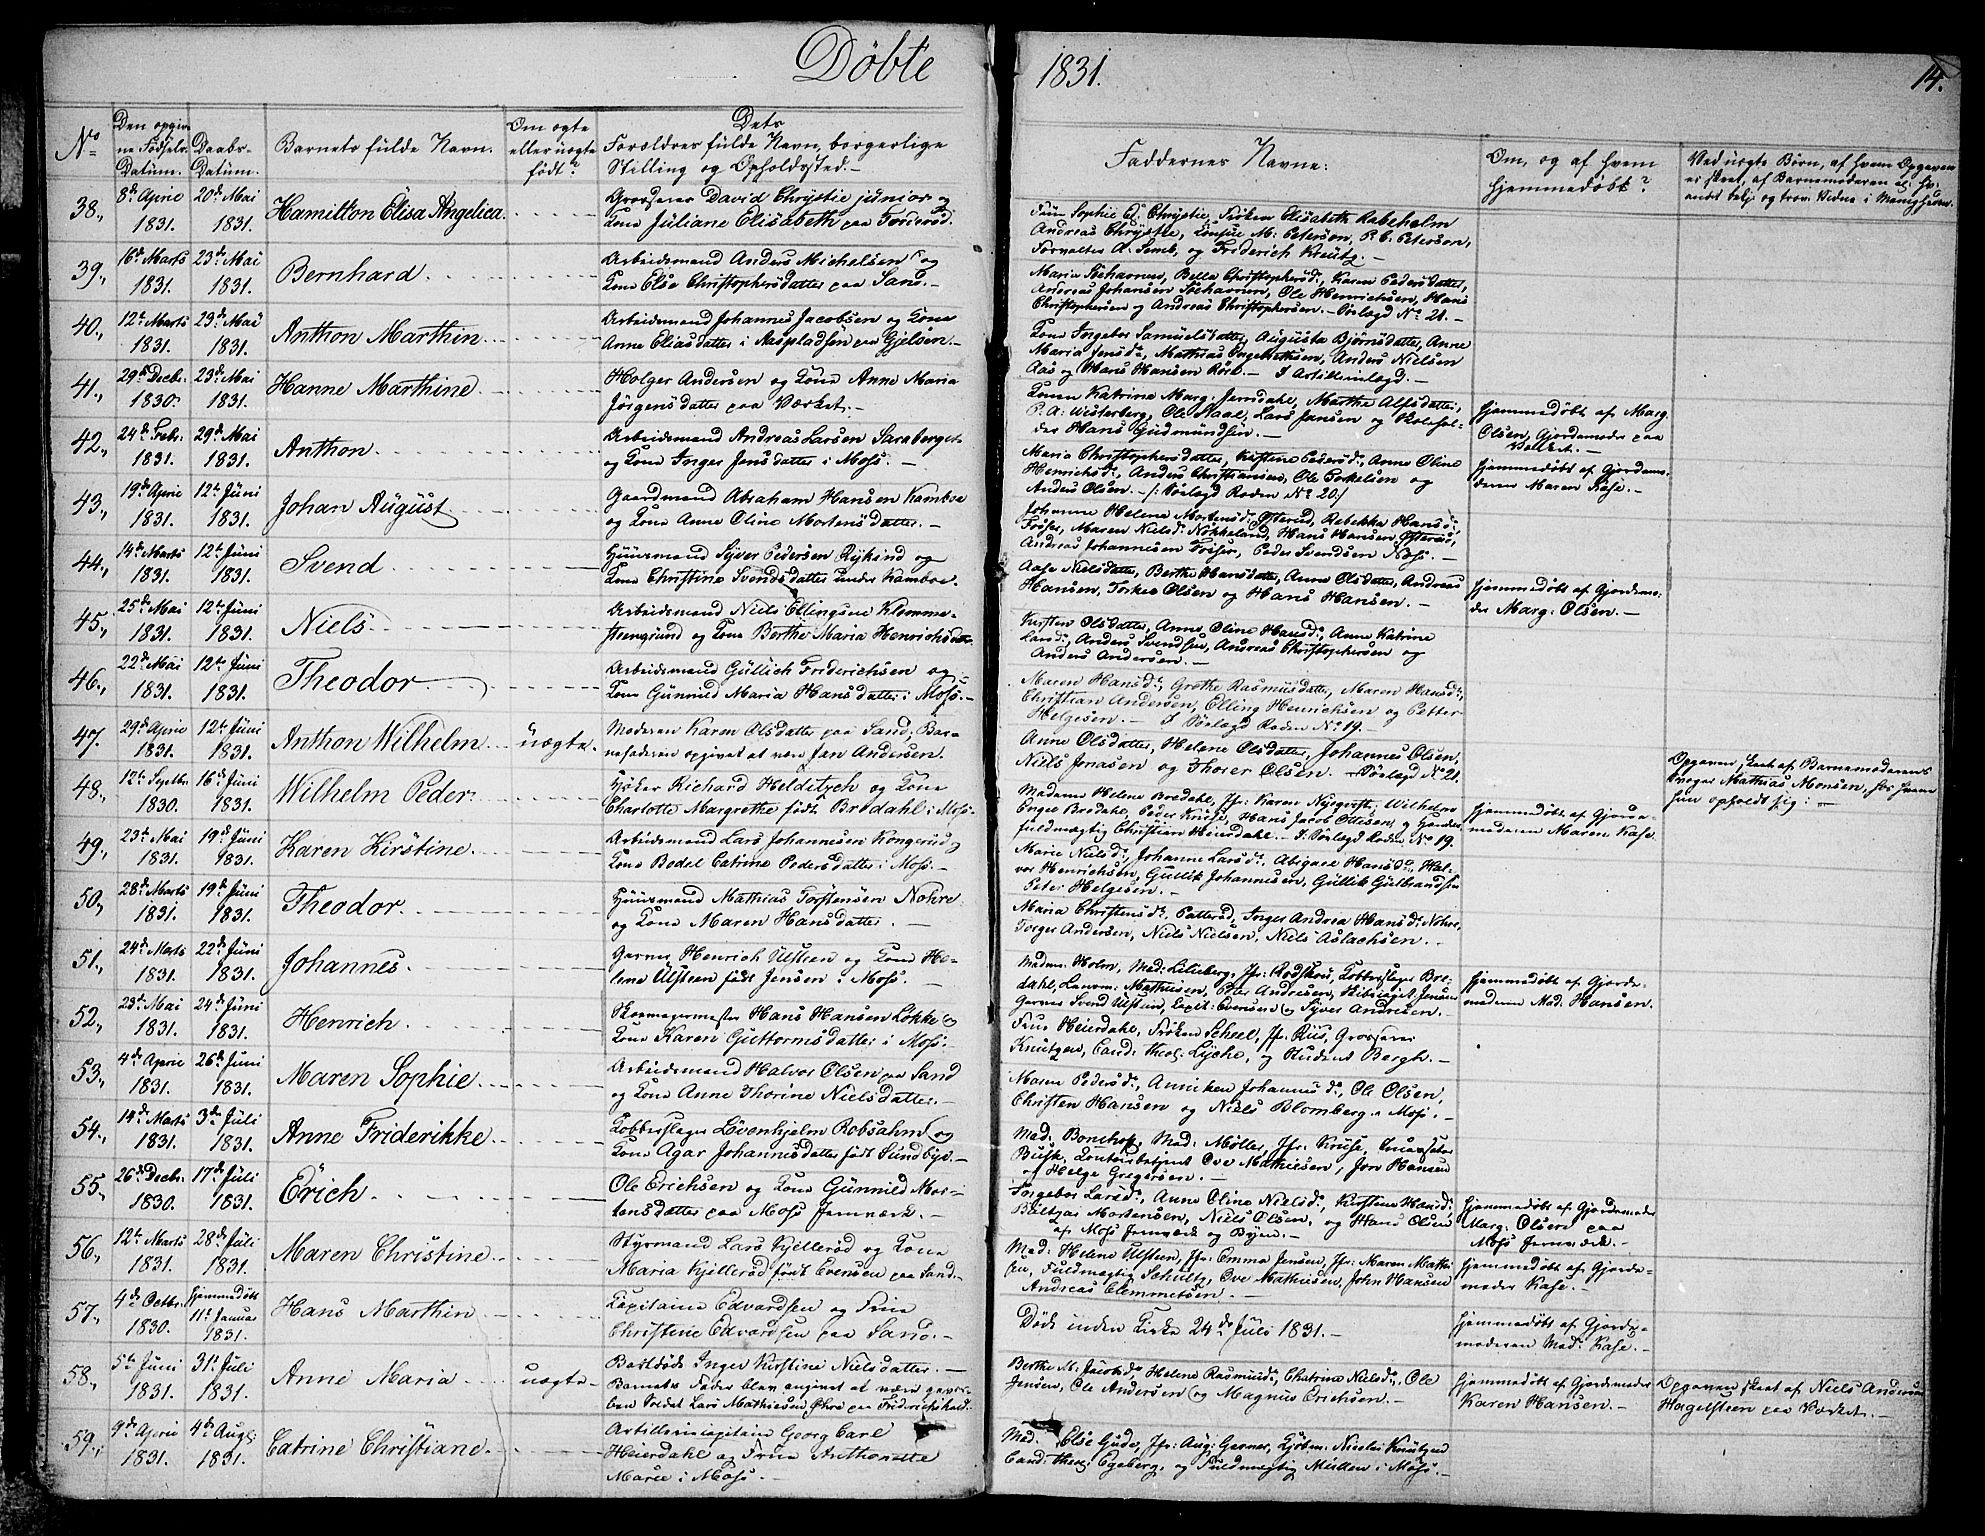 Döbte
1831.
14.
No
Den opgiv-
ne Födsels-
Datum.
Daabs-
Datum.
Barnets fulde Navn.
Om ægte
eller uægte
født?
Dets
Foreldres fulde Navn, borgerlige
Stilling og Opholdssted.-
Faddernes Navne:
Om, og af hvem
hjemmedöbt?
Ved uægte Börn, af hvem Opgaven
er skeet, af Barnemoderen el:
andet
38., 8de April 1831. 20de Mai 1831. Hamilton Elisa Angelica.
Grosserer David Chrystie junior og
Kone Juliane Elisabeth paa
Frue Sophie El. Chrystie, Fröken Elisabeth Rabeholm
Andreas Chrystie, M: Peterson, P. C. Peterson,
Forvalter A. Semb, og Friderich Kreutz.-
39., 16de Marts 1831. 23de Mai 1831. Bernhard.
Arbeidsmand Anders Michelsen og
Kone Else Christophersdatter paa Sand.-
Maria Söehavnen, Bella Christophersd., Karen Pedersdatter,
Andreas Johansen Söehavnen, Ole Henrichsen, Hans
Christophersen og Andreas Christophersen.- Sörlagd No 21.-
40., 12te Marts 1831. 23de Mai 1831. Anthon Marthin.
Arbeidsmand Johannes Jacobsen og Kone
Anne Eliasdatter i Aaspladsen paa Gjelsen.-
Kone Ingebor Samuelsdatter, Augusta Björnsdatter, Anne
Maria Jensd:, Mathias Engebrethsen, Anders Nielsen
Aas og Hans Hansen Rörb.-
41., 29de Decbr. 1830. 23de Mai 1831. Hanne Marthine
Holger Andersen og Kone Anne Maria
Jörgensdatter paa Værket.-
Konen Katrine Marg. Jerndahl, Marthe Alfsdatter,
P. A. Westerberg, Ole Maae, Lars Jensen og Skolehol-
der Hans Gudmundsen.-
hjemmedöbt af Marg.
Olsen, Gjordemoder paa
Værket.-
42., 24de Febr. 1831. 29de Mai 1831. Anthon.
Arbeidsmand Andreas Larsen Saraberget
og Kone Inger Jensdatter i Moss.-
Maria Christophersdatter, Kirstine Pedersd:, Anne Oline
Henrichsd:, Anders Christiansen, Ole Torkelsen og
Anders Olsen.- /: Sörlagd Roden No 20./
hjemmedöbt af Gjordemo-
deren Maren Kase.-
43., 19de April 1831. 12te Juni 1831. Johan August.
Gaardmand Abraham Hansen Kamboe
og Kone Anne Oline Mortensdatter.-
Johanne Helene Mortensd:, Rebekka Hansd:
Maren Nielsd: Nökkeland, Hans Hansen
Andreas Johannesen Peder Svendsen
44., 14de Marts 1831. 12te Juni 1831. Svend
Huusmand Syver Pedersen og
Kone Christine Svendsdatter under Kamboe.
Aase Nielsdatter, Berthe Hansdatter, Anne Olsdatter, Andreas
Hansen, Torkel Olsen og Hans Hansen.-
hjemmedöbt af Gjordemo-
der Marg: Olsen.-
45., 25de Mai 1831. 12te Juni 1831. Niels
Arbeidsmand Niels Ellingsen Klomme-
steengrund og Kone Berthe Maria Henrichsdatter
Kirsten Olsdatter, Anne Oline Hansd:, Anne Katrine
Larsd:, Anders Svendsen, Andreas Christophersen og
Anders Andersen.-
46., 22de Mai 1831. 12te Juni 1831. Theodor.
Arbeidsmand Gullich Friderichsen og
Kone Gunnild Maria Hansdatter i Moss.-
Maren Hansd:, Grethe Rasmusdatter, Maren Hansd:,
Christian Andersen, Elling Henrichsen og Petter
Helgesen.- I Sörlagd Roden No 19.-
47. 29de April 1831. 12te Juni 1831. Anthon Wilhelm uægte.
Moderen Karen Olsdatter paa Sand; Bar-
nefaderen opgivet at være Jan Andersen.
Anne Olsdatter, Helene Olsdatter, Johannes Olsen,
Niels Jonasen og Thorer Olsen.- Sörlagd No 21.
Opgaven skeet af Barnemoderens
Svoger Mathias Monsen, hos hvem
hun opholdt sig:-
48., 12te Septbr. 1830. 16de Juni 1831. Wilhelm Peder.
Richard Helditzch og Kone
Charlotte Margrethe födt Bredahl i Moss.
Madame Helene Bredahl, Jfr: Karen Nyegerst: Wilhelm
Enger Bredahl, Peder Kruse, Hans Jacob Ottesen, og Handels
fuldmægtig Christian Heierdahl.- I Sörlagd Roden No 19.
hjemmedöbt af Gjorde-
moderen Maren Kase.
49., 23de Mai 1831. 19de Juni 1831. Karen Kirstine.
Arbeidsmand Lars Johannesen Kongerud og
Kone Bedel Catrine Pedersdatter i Moss.-
Marie Nielsd:, Johanne Larsd:, Abigael Hansd:, Hal-
vor Henrichsen, Gullik Johannesen, Gullik Gulbrandsen
Peter Helgesen.-
50., 28de Marts 1831. 19de Juni 1831. Theodor.
Huusmand Mathias Torstensen Nohre
og Kone Maren Hansdatter.-
Maria Christensd: Patteröd, Inger Andrea Hansd: Nohre,
Torger Andersen, Niels Nielsen, Niels Aslachsen.-
51., 24de Marts 1831. 22de Juni 1831. Johannes.
Garver Henrich Ulsteen og Kone He-
lene Ulsteen födt Jensen i Moss.-
Madam: Holm, Mad: Lilieberg, Jfr: Rodskou, Kobberslager Bre-
dahl, Mathiesen, Peter Andresen, Jensen
Garver Svend Ulsteen, Evensen og Syver Andresen.-
hjemmedöbt af Gjorde-
moderen Mad: Hansen.
52., 23de Mai 1831. 24de Juni 1831. Henrich.
Skomagermester Hans Hansen Lökke og
Kone Karen Guttormsdatter i Moss.-
Frue Heierdahl, Fröken Scheel, Jfr: Rus, Grosserer
Knutzen, Cand: Theol: Lyche, og Student Bergh.-
53., 4de April 1831. 26de Juni 1831. Maren Sophie.
Arbeidsmand Halvor Olsen paa Sand
og Kone Anne Thorine Nielsdatter.-
Maren Pedersd:, Anniken Johannesd:, Ole Olsen,
Christen Hansen og Niels Blomberg i Moss.-
54., 14de Marts 1831. 3de Juli 1831. Anne Friderikke.
Kobberslager Lövenhjelm Robsahm og
Kone Agar Johannesdatter födt Sundbye.-
Mad. Bonchop, Mad: Mölle, Jfr: Kruse,
Busk, Contoirbetjent Ove Mathiesen, Jörn Hansen
og Helge Gregersen.-
55., 26de Decbr. 1830. 17de Juli 1831. Erich.
Ole Erichsen og Kone Gunnild Mor-
tensdatter paa Moss Jernværk.-
Ingebor Larsd:, Anne Oline Nielsd:, Kirstine Hansd:,
Baltzar Mortensen, Niels Olsen, og Hans Olsen
af Moss Jernværk og Byen.-
hjemmedöbt af Gjordemoder
Marg: Olsen paa
Moss Jernværk.-
56., 12te Marts 1831. 28de Juli 1831. Maren Christine.
Styrmand Lars Kjelleröd og Kone
Maria Kjelleröd födt Evensen paa Sand.
Mad: Helene Ulsteen, Jfr: Emma Jensen, Jfr: Maren Mathi-
sen, Fuldmægtig Schultz, Ove Mathiesen, John Hansen
Andreas Clemmetsen.-
hjemmedöbt af Gjorde-
moder Kase.-
57., 4de Octbr. 1830. hjemmedöbt 11te Januar 1831. Hans Marthin.
Kapitaine Edvardsen og Frue
Christine Edvardsen paa Sand.-
Döde inden Kirke 24de Juli 1831.-
hjemmedöbt af Gjorde-
moderen Mad: Kase.-
58., 5te Juni 1831. 31te Juli 1831. Anne Maria. uægte.
Inger Kirstine Nielsdatter.-
Barnets Fader blev angivet at være gevor-
ben Soldat Lars Mathiesen Öhre paa Fridrichshald.
Berthe M: Jacobsd:, Helene Rasmusd:, Chatrine Nielsd:, Ole
Jensen, Ole Andersen og Magnus Erichsen.
hjemmedöbt af Gjordemoder
Karen Hansen.-
Opgaven skeet af Niels Andersen
Hagelsteen paa Værket.-
59., 9de April 1831. 4de Aug. 1831. Catrine Christiane.
Artillericapitain Georg Carl
Heierdahl og Frue Anthonette
Marie i Moss.-
Mad. Else Gude, Jfr: Aug: Garner, Kjöbm: Nicolai Knutzen
Cand: theol: Egeberg, og Fuldmægtig Mülten i Moss.-